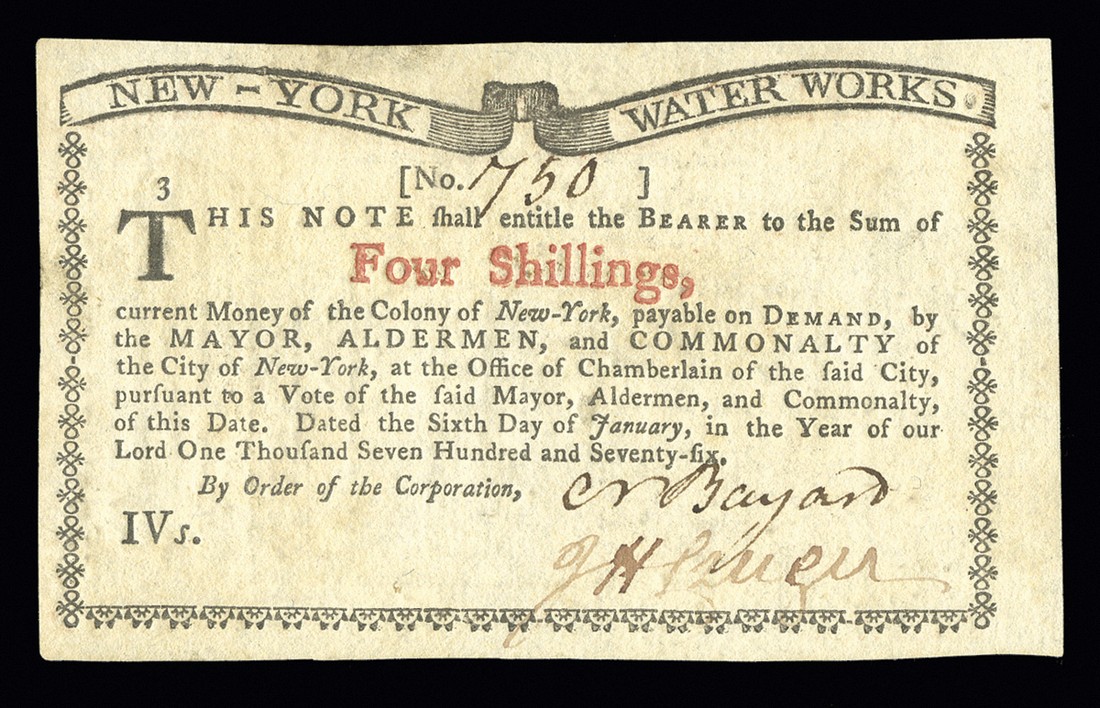 NEW-YORK WATER WORKS.
[No. 750 ]
3
THIS NOTE ſhall entitle the BEARER to the Sum of
Four Shillings,
current Money of the Colony of New-York, payable on DEMAND, by
the MAYOR, ALDERMEN, and COMMONALTY of
the City of New-York, at the Office of Chamberlain of the ſaid City,
purſuant to a Vote of the ſaid Mayor, Aldermen, and Commonalty,
of this Date. Dated the Sixth Day of January, in the Year of our
Lord One Thouſand Seven Hundred and Seventy-ſix.
By Order of the Corporation,
N Bayard
IVs.
J H Cruger